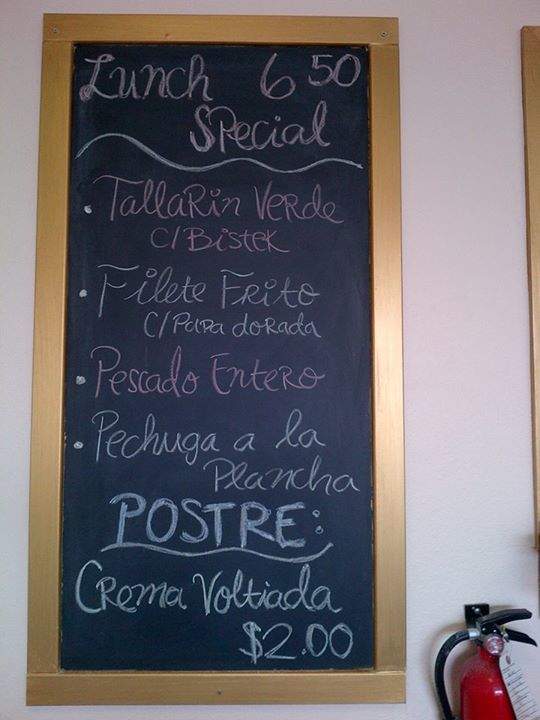 Lunch 6 50
Special
• Tallarin Verde
C/Bistek
• Filete Frito
C/Papa dorada
• Pescado Entero
• Pechuga a la
Plancha
POSTRE:
Crema Voltiada
$2.00